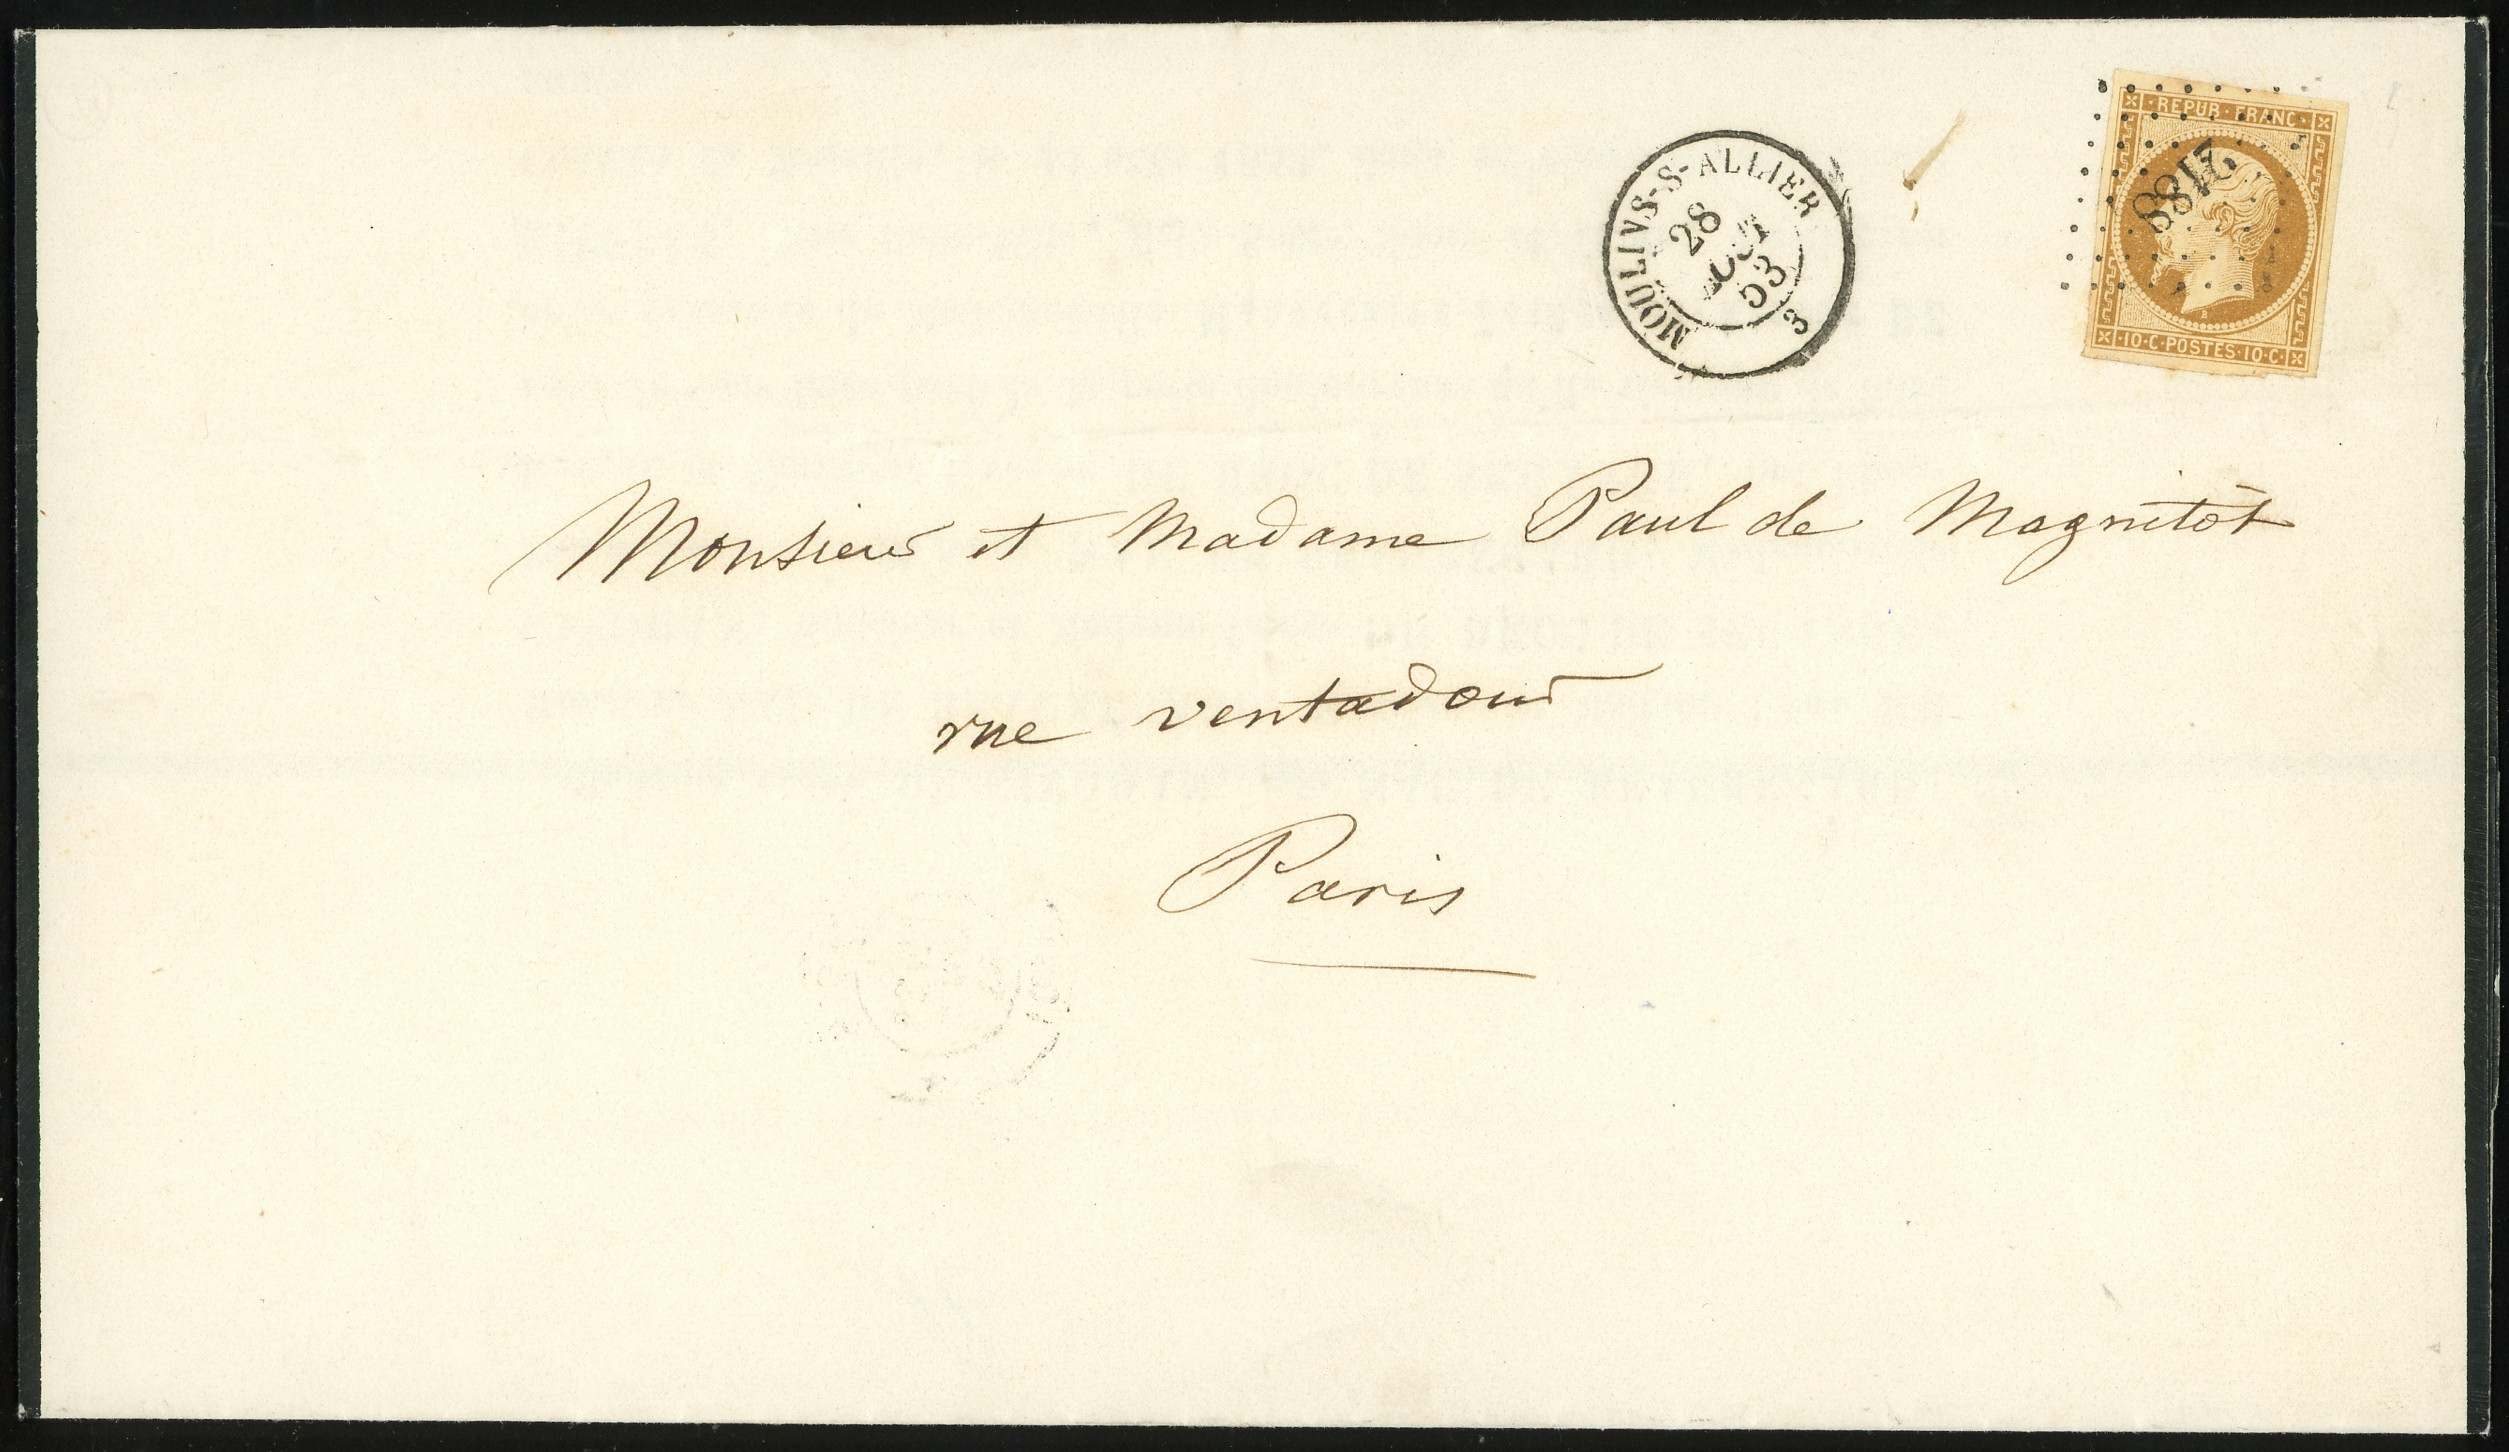 REPUB·FRANC·
2188
10·C·POSTES·10·C·
MOULINS-S-ALLIER
28
AOUT
53
3
Monsieur et Madame Paul de Magnitôt
rue ventadour
Paris